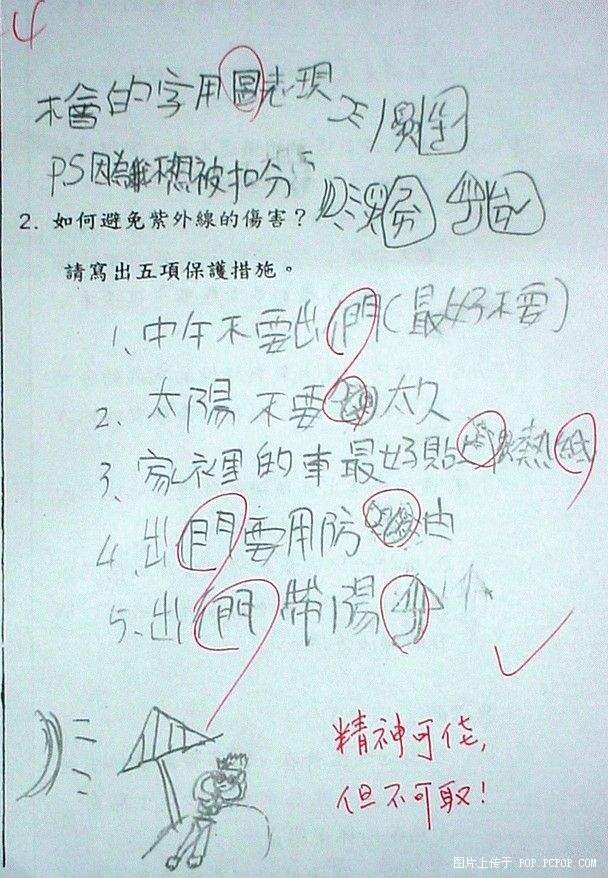 -4
不會的字用圖表現
PS因為不想被扣分
2. 如何避免紫外線的傷害？
請寫出五項保護措施。
1、中午不要出門(最好不要)
2、太陽不要太久
3、家裡的車最好貼隔熱紙
4、出門要用防油
5、出門帶陽
精神可佳,
但不可取!
图片上传于:POP.PCPOP.COM